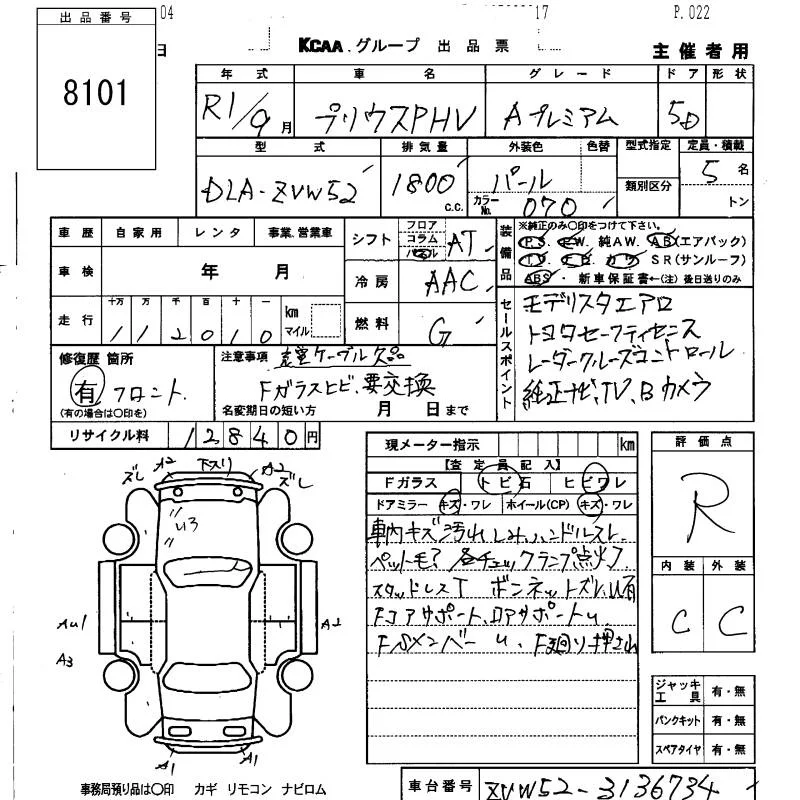 04
17
P.022
出品番号
8101
日
KCAA グループ 出品票
主催者用
年式
車名
グレード
ドア
形状
R1/9月
プリウスPHV
Aプレミアム
5D
型式
排気量
外装色
色替
型式指定
定員・積載
類別区分
DLA-ZVW52
1800 c.c.
パール
カラーNo. 070
5名
トン
車歴
自家用
レンタ
事業.営業車
シフト
フロア
コラム
パネル
AT
装備品
※純正のみ○印をつけて下さい。
P.S. P.W. 純AW. AB(エアバック)
T.V. カワ SR(サンルーフ)
ABS・新車保証書←(注)後日送りのみ
車検
年 月
冷房
AAC
走行
十万 万 千 百 十 一
112010
km
マイル
燃料
G
セールスポイント
モデリスタエアロ
トヨタセーフティセンス
レーダークルーズコントロール
純正ナビ、TV、Bカメラ
修復歴 箇所
有 フロント
(有の場合は○印を)
注意事項
充電ケーブル欠品
Fガラスヒビ、要交換
名変期日の短い方 月 日まで
リサイクル料
12840円
現メーター指示
km
【査定員記入】
Fガラス
トビ石
ヒビワレ
ドアミラー
キズ・ワレ
ホイール(CP)
キズ・ワレ
車内キズ汚れ、しみ、ハンドルスレ
ペット毛? 各チェックランプ点灯
スタッドレスT ボンネットズレ、U有
Fコアサポート、ロアサポートU
FSメンバーU、F廻り押され
評価点
R
内装
外装
C
C
ズレ
A2
下スリ
A2
ズレ
U3
AU1
A2
A3
A1
A1
ジャッキ工具 有・無
パンクキット 有・無
スペアタイヤ 有・無
事務局預り品は○印 カギ リモコン ナビロム
車台番号
ZVW52-3136734